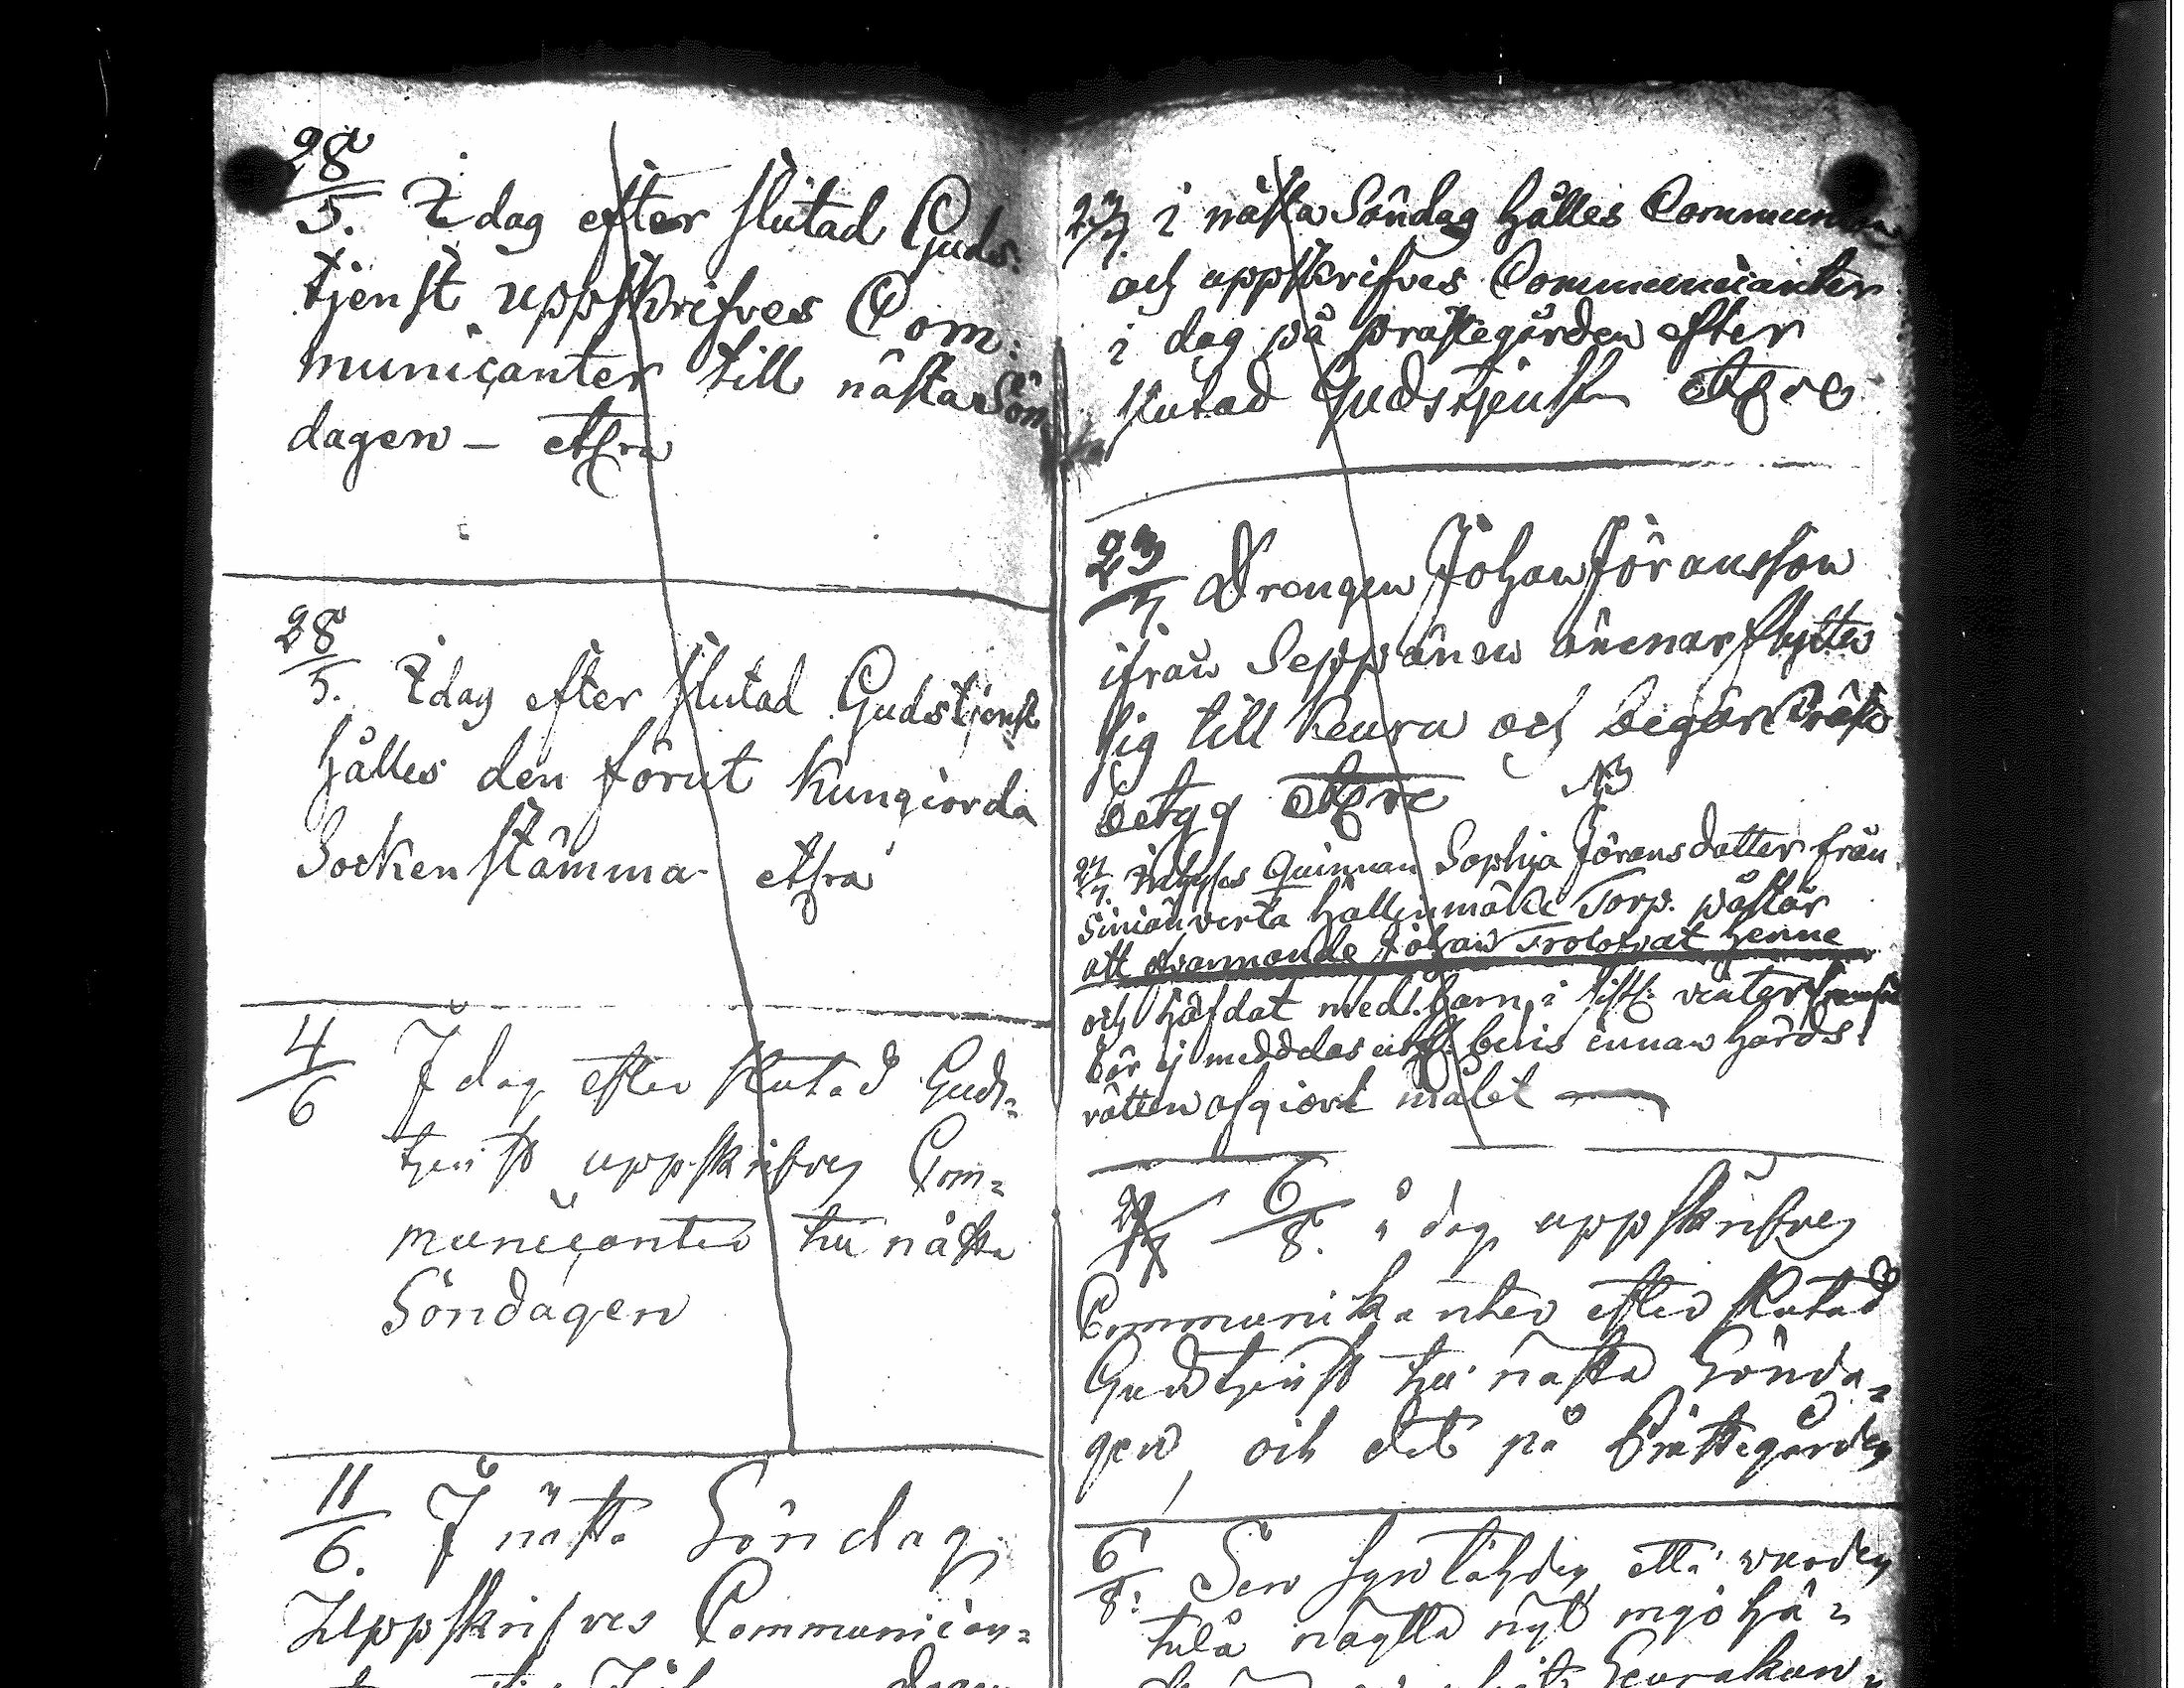 28/5. I dag efter slutad Guds:
tjenst uppskrifves Com:
municanter till nästa Sön
dagen —
28/5. I dag efter slutad Gudstjenst
hålles den förut kungiorda
Sockenstämma
4/6 I dag efter slutad Guds=
tjenst uppskrifves Com=
municanter till nästa
Söndagen
11/6. I nästa Söndag
Uppskrifves Communican=
23/7. i nästa Söndag hålles Communion
och uppskrifves Communicanter
i dag på prästegården efter
slutad Gudstjenst
23/7 Drengen Johan Jöransson
ifrån Seppänen ämnar flytta
sig till Keuru och begär Präst
betyg NB
Quinnan Sophia Jöransdatter från
Torp. påstår
att ofvannämnde Johan Trolofvat henne
och häfdat med barn i sistl: vinter
bör ej meddelas bevis innan Härads
rätten afgiort målet —
6/8. i dag uppskrifves
Communikanter efter slutad
Gudstjenst till nästa Sönda=
gen, och det på Prästegården
6/8: Sen syn tähden että
tulä nyt myö hä=
Seurakun=